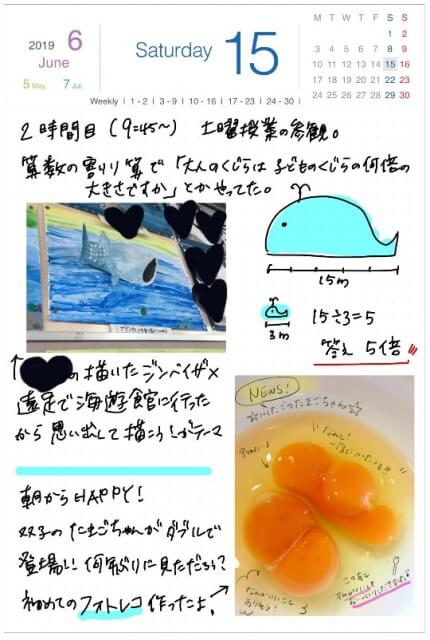 2019 6
June
5 May. 7 Jul.
Saturday 15
Weekly | 1 - 2 | 3 - 9 | 10 - 16 | 17 - 23 | 24 - 30 |
M T W T F S S
1 2
3 4 5 6 7 8 9
10 11 12 13 14 15 16
17 18 19 20 21 22 23
24 25 26 27 28 29 30
2時間目 (9:45〜) 土曜授業の参観。
算数の割り算で「大人のくじらは子どものくじらの何倍の
大きさですか」とかやってた。
15m
3m
15÷3=5
答え 5倍
↑の描いたジンベイザメ
遠足で海遊館に行った
から思い出して描こう!がテーマ
朝からHAPPY!
双子のたまごちゃんがダブルで
登場!! 何年ぶりに見ただろう?
初めてのフォトレコ作ったよ。
NEWS!
☆ふたごのたまごちゃん☆
なんと!
なんかいいこと
ありそう!
このあと